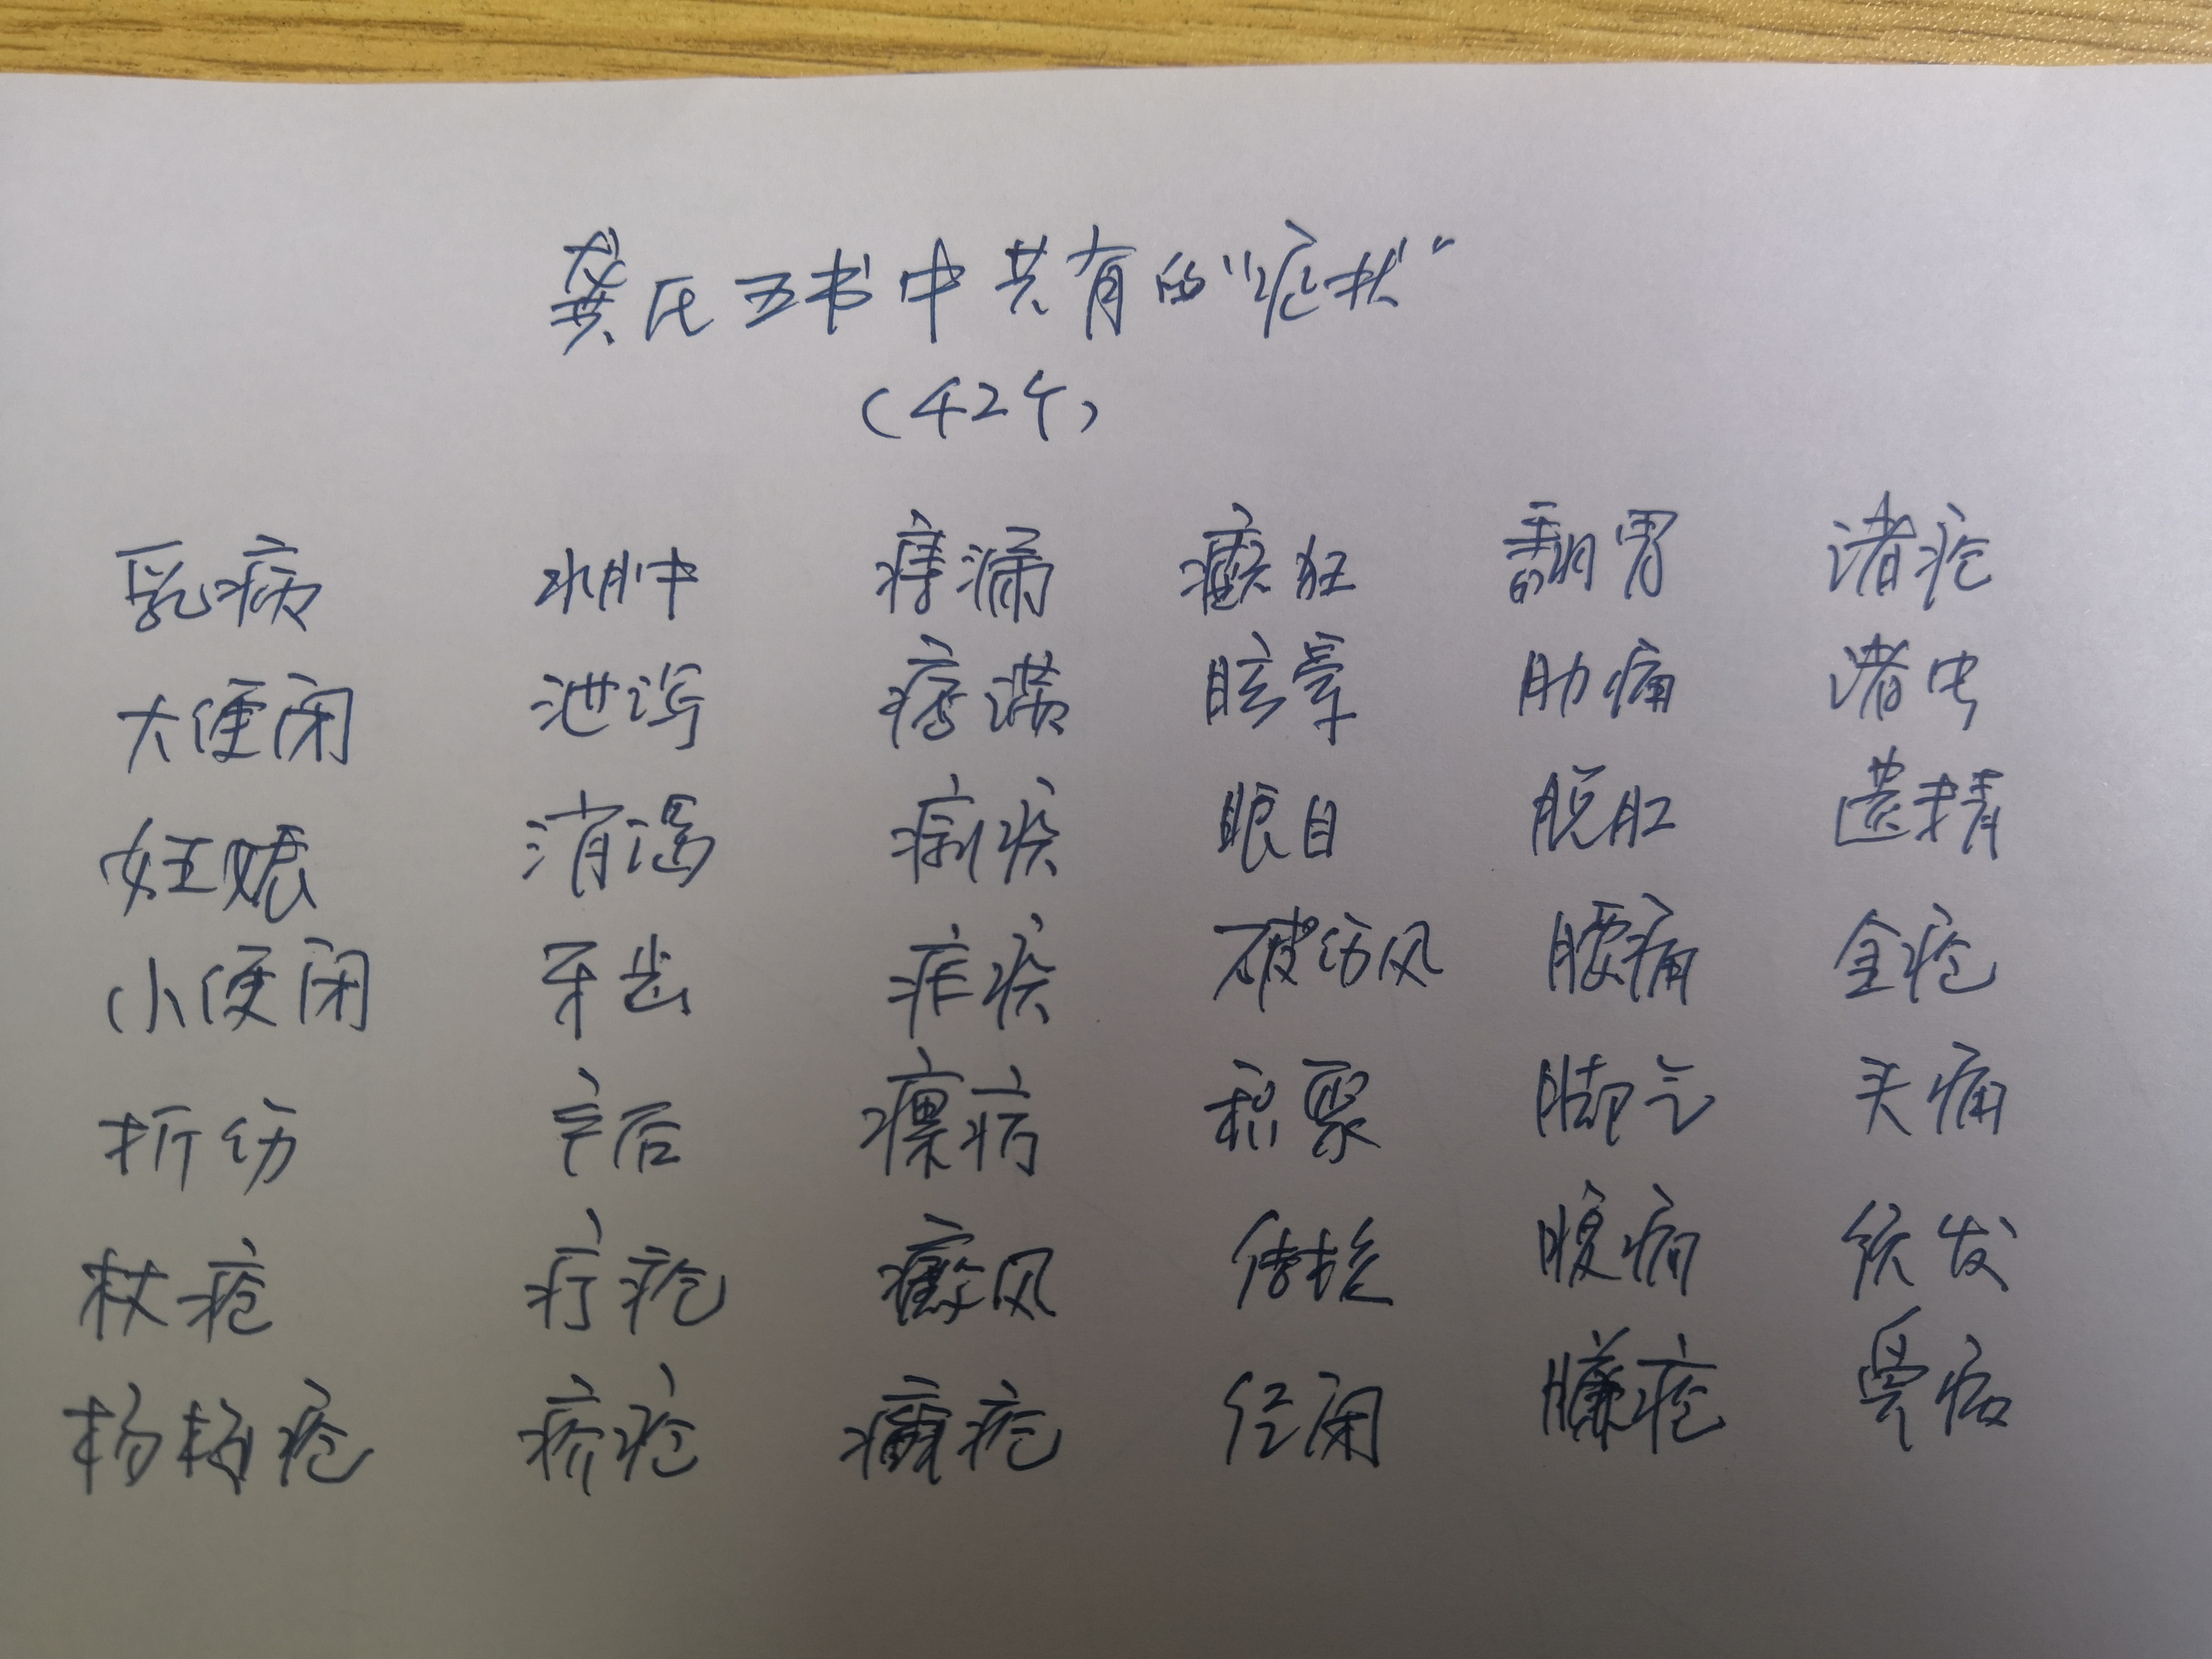 龚氏五书中共有的“症状”
(42个)
乳病 水肿 痔漏 癫狂 翻胃 诸疮
大便闭 泄泻 痞满 眩晕 胁痛 诸虫
妊娠 消渴 痢疾 眼目 脱肛 遗精
小便闭 牙齿 疟疾 破伤风 腰痛 金疮
折伤 产后 瘰疬 积聚 脚气 头痛
杖疮 疔疮 癜风 结核 腹痛 须发
杨梅疮 疥疮 癣疮 经闭 臁疮 鼻病